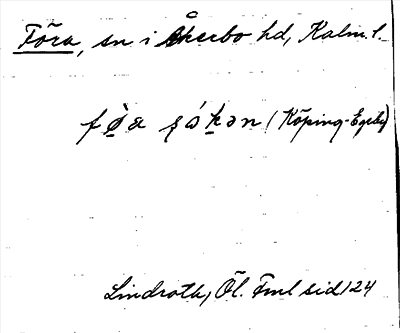 Föra, sn i Åkerbo hd, Kalm. l.
fø̀a sǿkən (Köping-Egby)
Lindroth, Öl. Fml sid 124